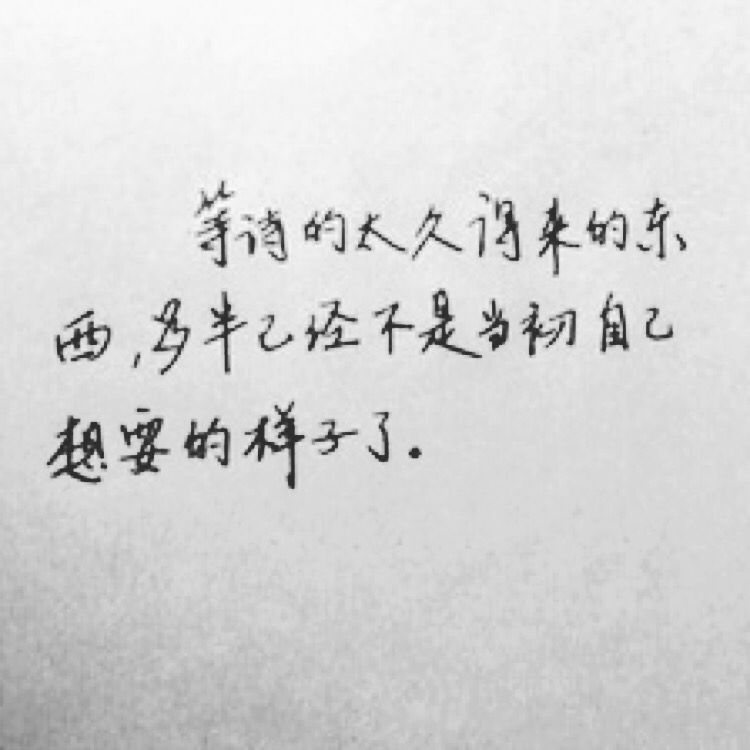 等待的太久得来的东
西,多半已经不是当初自己
想要的样子了.